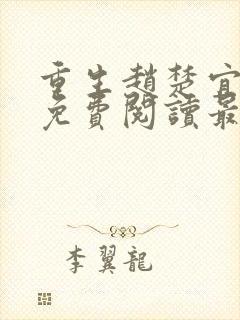 重生趙楚宜
免費閱讀最
李翼龍